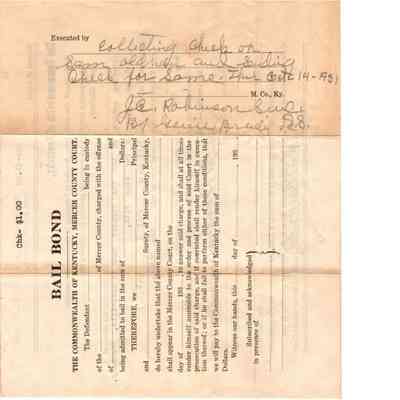 Executed by
Collecting Check on
and
Check for Same. This Oct 14-1931
M. Co., Ky.
J.C. Robinson
By D.S.
Chk- $1.00
BAIL BOND
THE COMMONWEALTH OF KENTUCKY, MERCER COUNTY COURT.
The Defendant being in custody
of the of Mercer County, charged with the offense
of and
being admitted to bail in the sum of Dollars:
THEREFORE, we Principal
and Surety, of Mercer County, Kentucky,
do hereby undertake that the above named
shall appear in the Mercer County Court, on the
day of 193 , to answer said charge, and shall at all times
render himself amenable to the order and process of said Court in the
prosecution of said charge, and if convicted shall render himself in execu-
tion thereof; or if he shall fail to perform either of these conditions, that
we will pay to the Commonwealth of Kentucky the sum of
Dollars.
Witness our hands, this day of , 193
Subscribed and acknowledged
in presence of